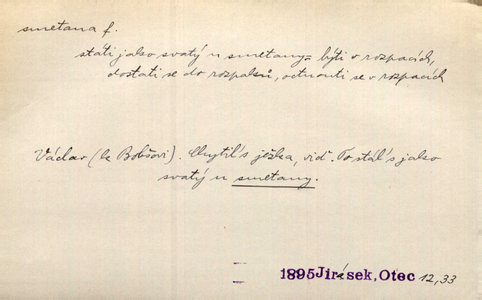 smetana f.
státi jako svatý u smetany = býti v rozpacích,
dostati se do rozpaků, octnouti se v rozpacích
Václav (k Bobšovi). Chytil's ježka, viď. To stál's jako
svatý u smetany.
1895 Jirásek, Otec 12,33